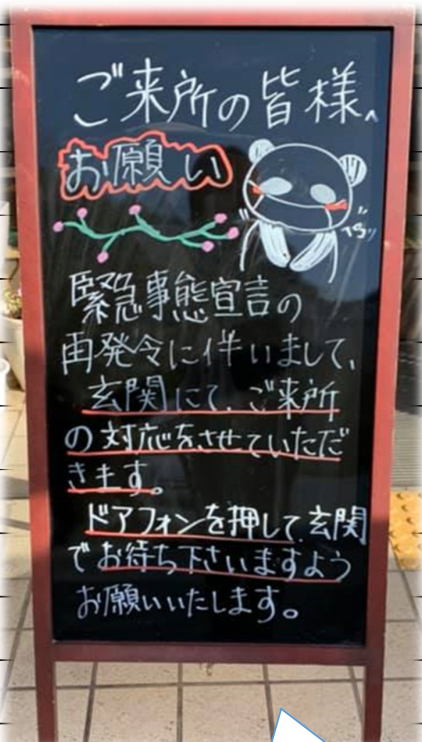 ご来所の皆様へ
お願い
ペコッ
緊急事態宣言の
再発令に伴いまして、
玄関にて、ご来所
の対応をさせていただ
きます。
ドアフォンを押して、玄関
でお待ち下さいますよう
お願いいたします。